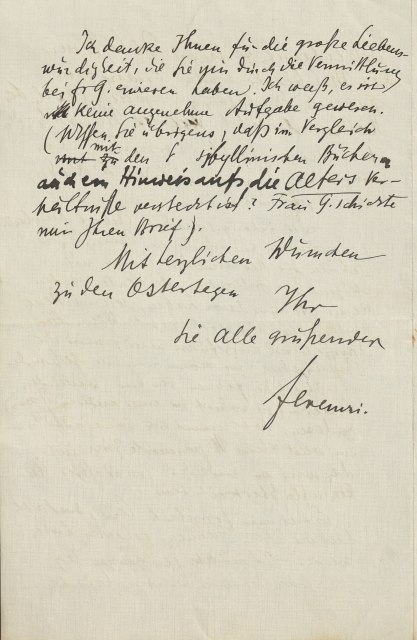 Ich danke Ihnen für die große Liebens-
würdigkeit, die Sie mir durch die Vermittlung
bei fr G. erwiesen haben. Ich weiß, es ist
keine angenehme Aufgabe gewesen.
(Wissen Sie übrigens, daß im Vergleich
mit den sibyllinischen Büchern
auch ein Hinweis aufs die Alters Ver-
hältnisse versteckt ist? Frau G. schickte
mir Ihren Brief).
Mit herzlichen Wünschen
zu den Ostertagen Ihr
Sie alle grüßender
Ferenczi.